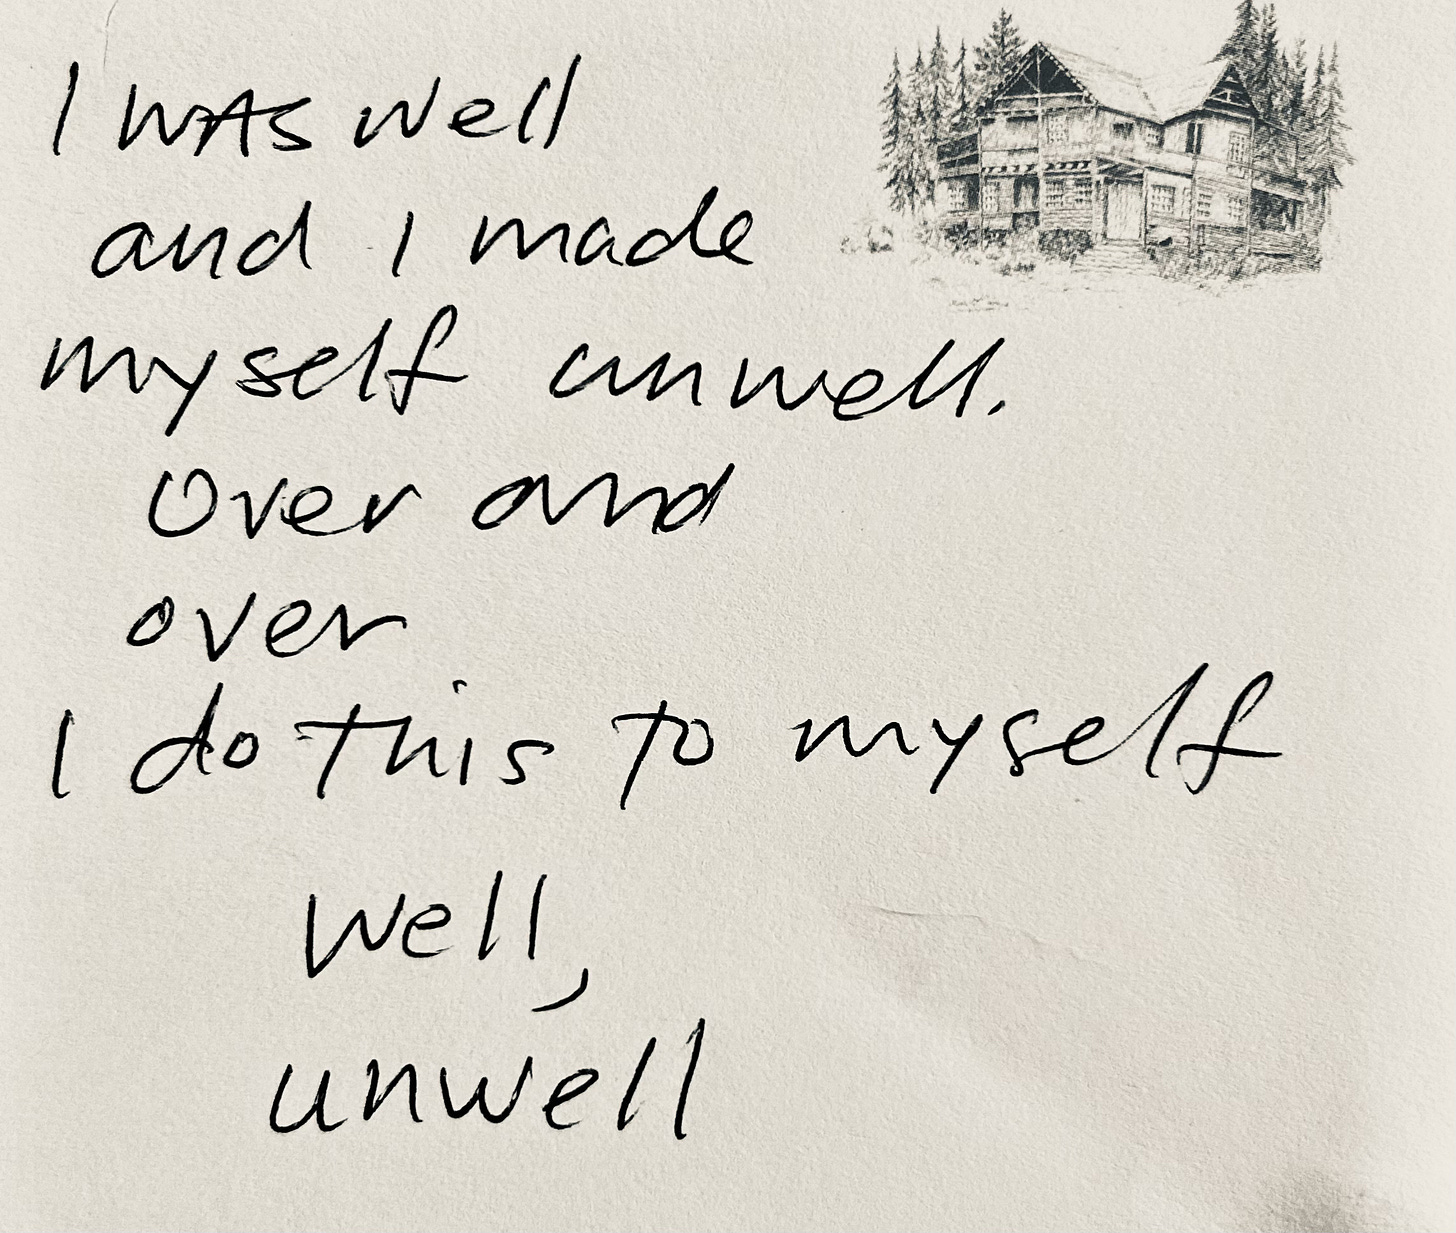 I wAs well
and I made
myself unwell.
Over and
over
I do this to myself
well,
unwell